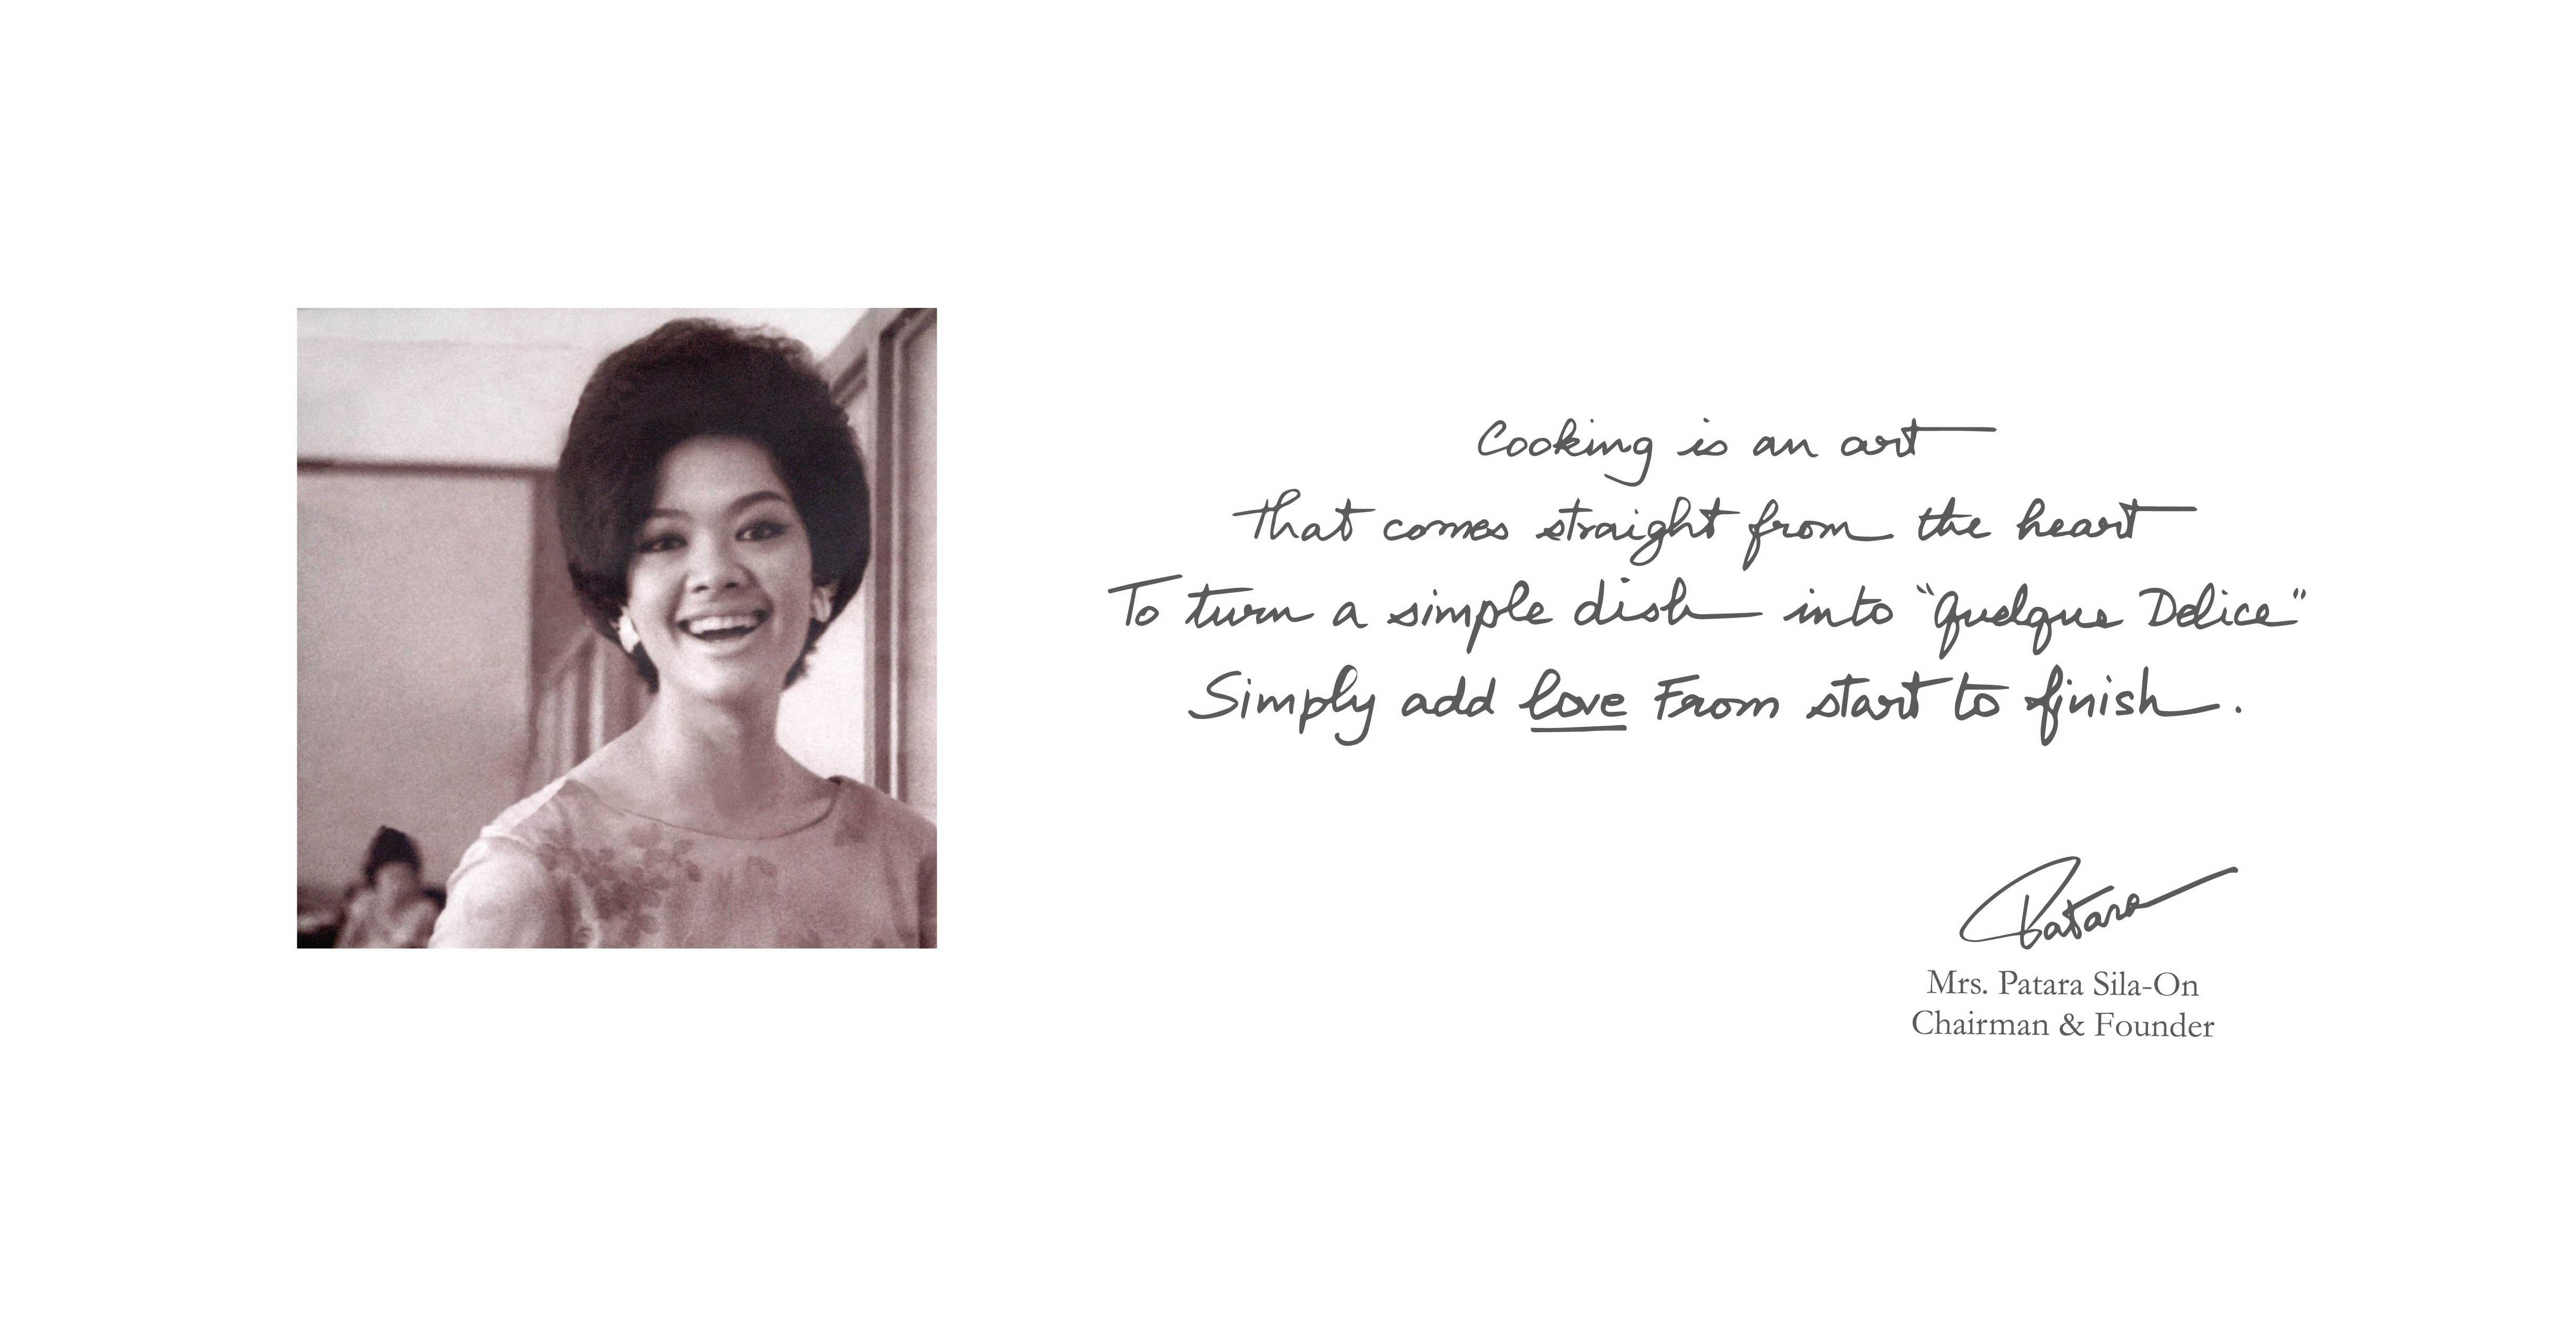 Cooking is an art
that comes straight from the heart
To turn a simple dish into "Quelque Delice"
Simply add love From start to finish.
Patara
Mrs. Patara Sila-On
Chairman & Founder